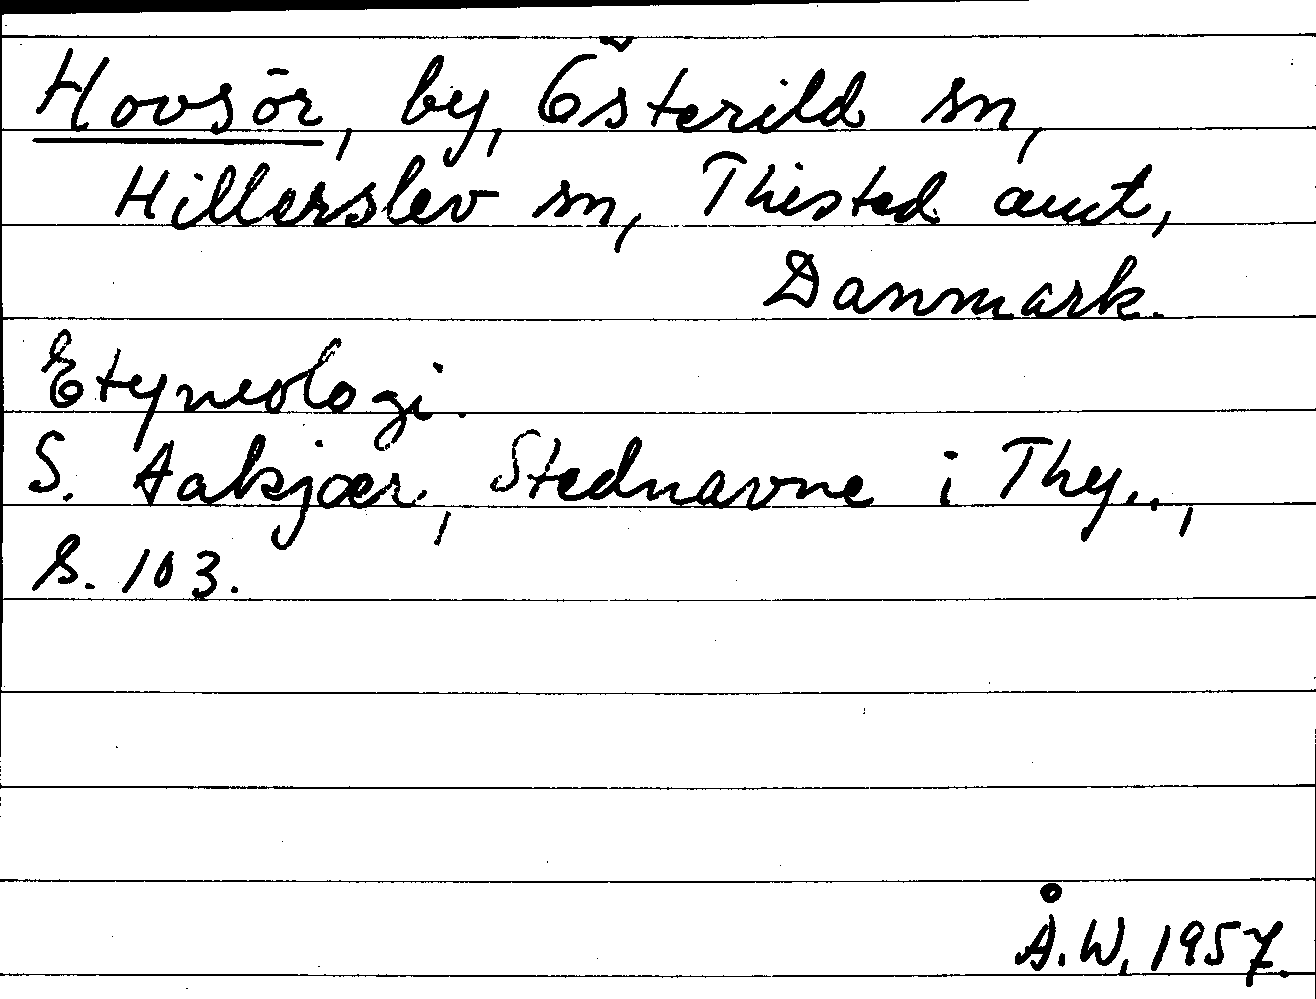 Hovsör, by, Österild sn,
Hillerslev sn, Thisted amt,
Danmark.
Etymologi.
S. Aakjær, Stednavne i Thy..,
S. 103.
Å.W. 1957.